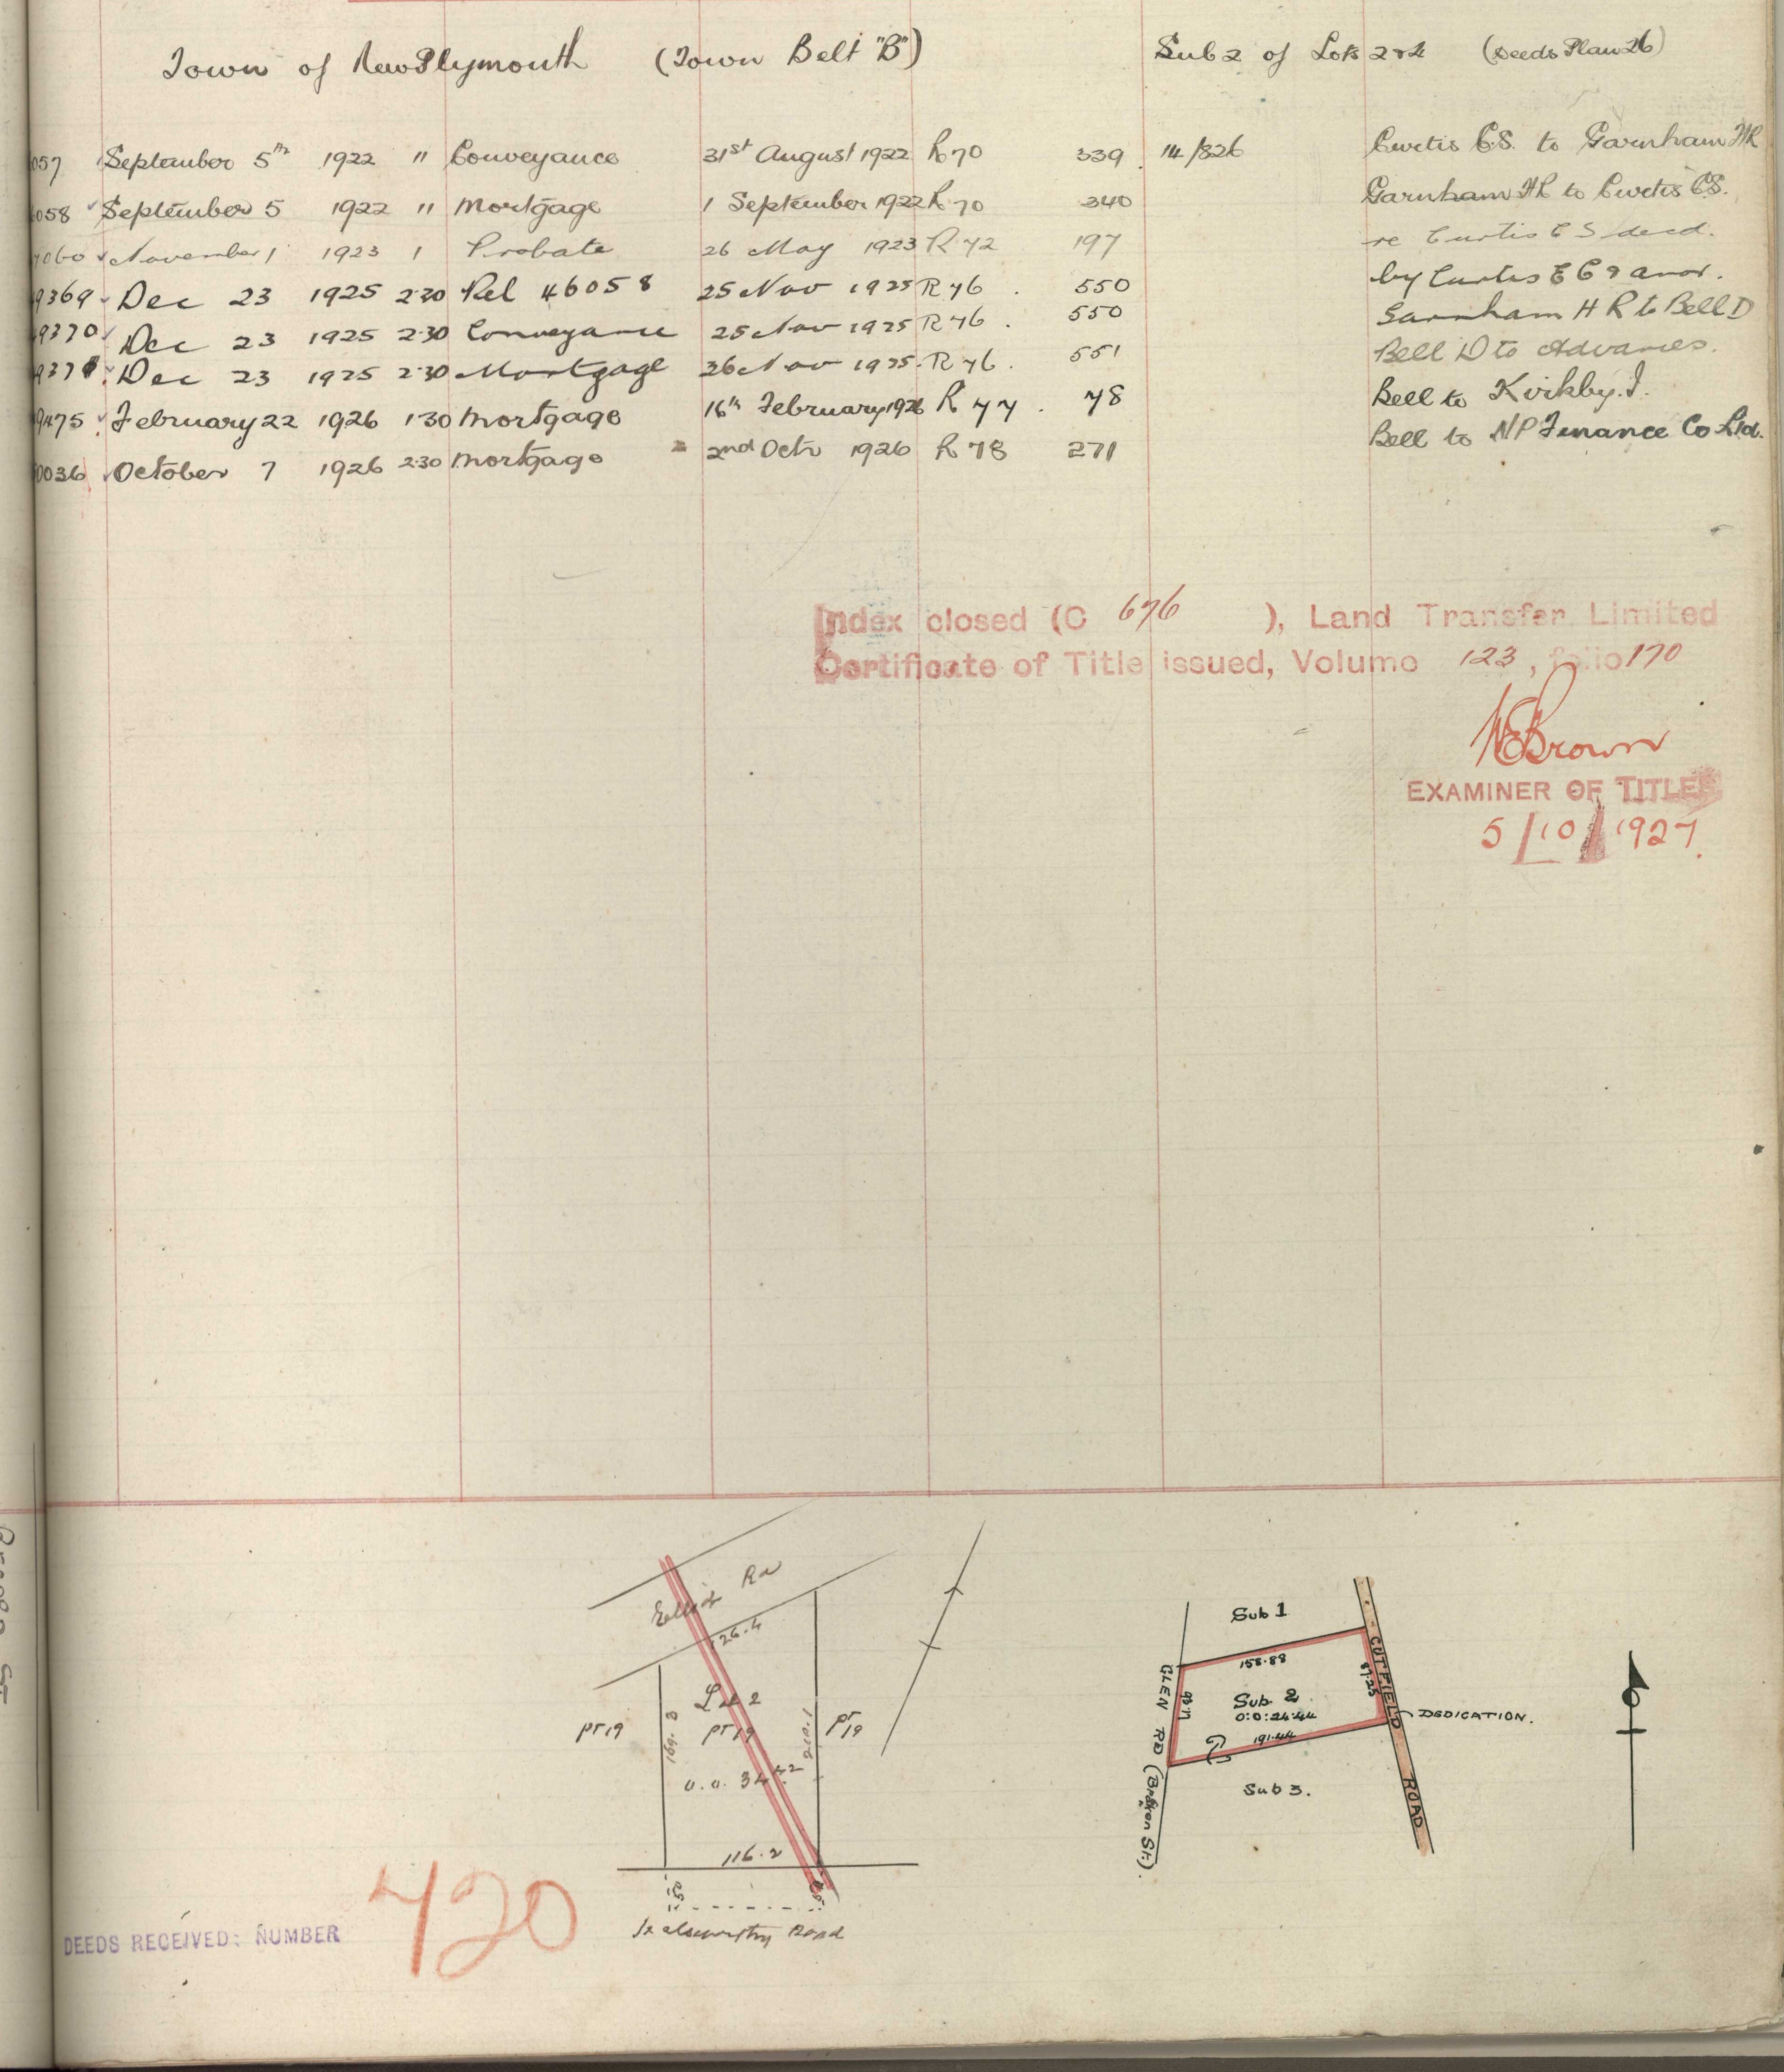 Town of New Plymouth (Town Belt "B") Sub 2 of Lots 2 & 4 (Deeds Plan 26)
057 September 5th 1922 " Conveyance 31st August 1922 R 70 339 14/826 Curtis C.S. to Garnham HR
058 September 5 1922 " Mortgage 1 September 1922 R 70 340 Garnham HR to Curtis C.S.
060 November 1 1923 1 Probate 26 May 1923 R 72 197 re Curtis C S decd.
9369 Dec 23 1925 2.30 Rel 46058 25 Nov 1925 R 76 . 550 by Curtis E C & anor.
9370 Dec 23 1925 2.30 Conveyance 25 Nov 1925 R 76 . 550 Garnham H R to Bell D
937 Dec 23 1925 2.30 Mortgage 26 Nov 1925. R 76 . 551 Bell D to Advances.
9475 February 22 1926 1.30 Mortgage 16th February 1926 R 77 . 78 Bell to Kirkby. J.
0036 October 7 1926 2.30 Mortgage 2nd Octr 1926 R 78 271 Bell to NP Finance Co Ltd.
Index closed (C 676 ), Land Transfer Limited
Certificate of Title issued, Volume 123, folio 170
Brown
EXAMINER OF TITLES
5/10/1927
Elliot Rd
126.4
Lot 2
pt 19
169.3
pt 19
210.1
pt 19
0.0.34
116.2
Road
Sub 1
158.88
GLEN RD
Sub 2
0:0:24.44
87.23
CUTFIELD ROAD
DEDICATION.
191.44
Sub 3.
DEEDS RECEIVED: NUMBER 420